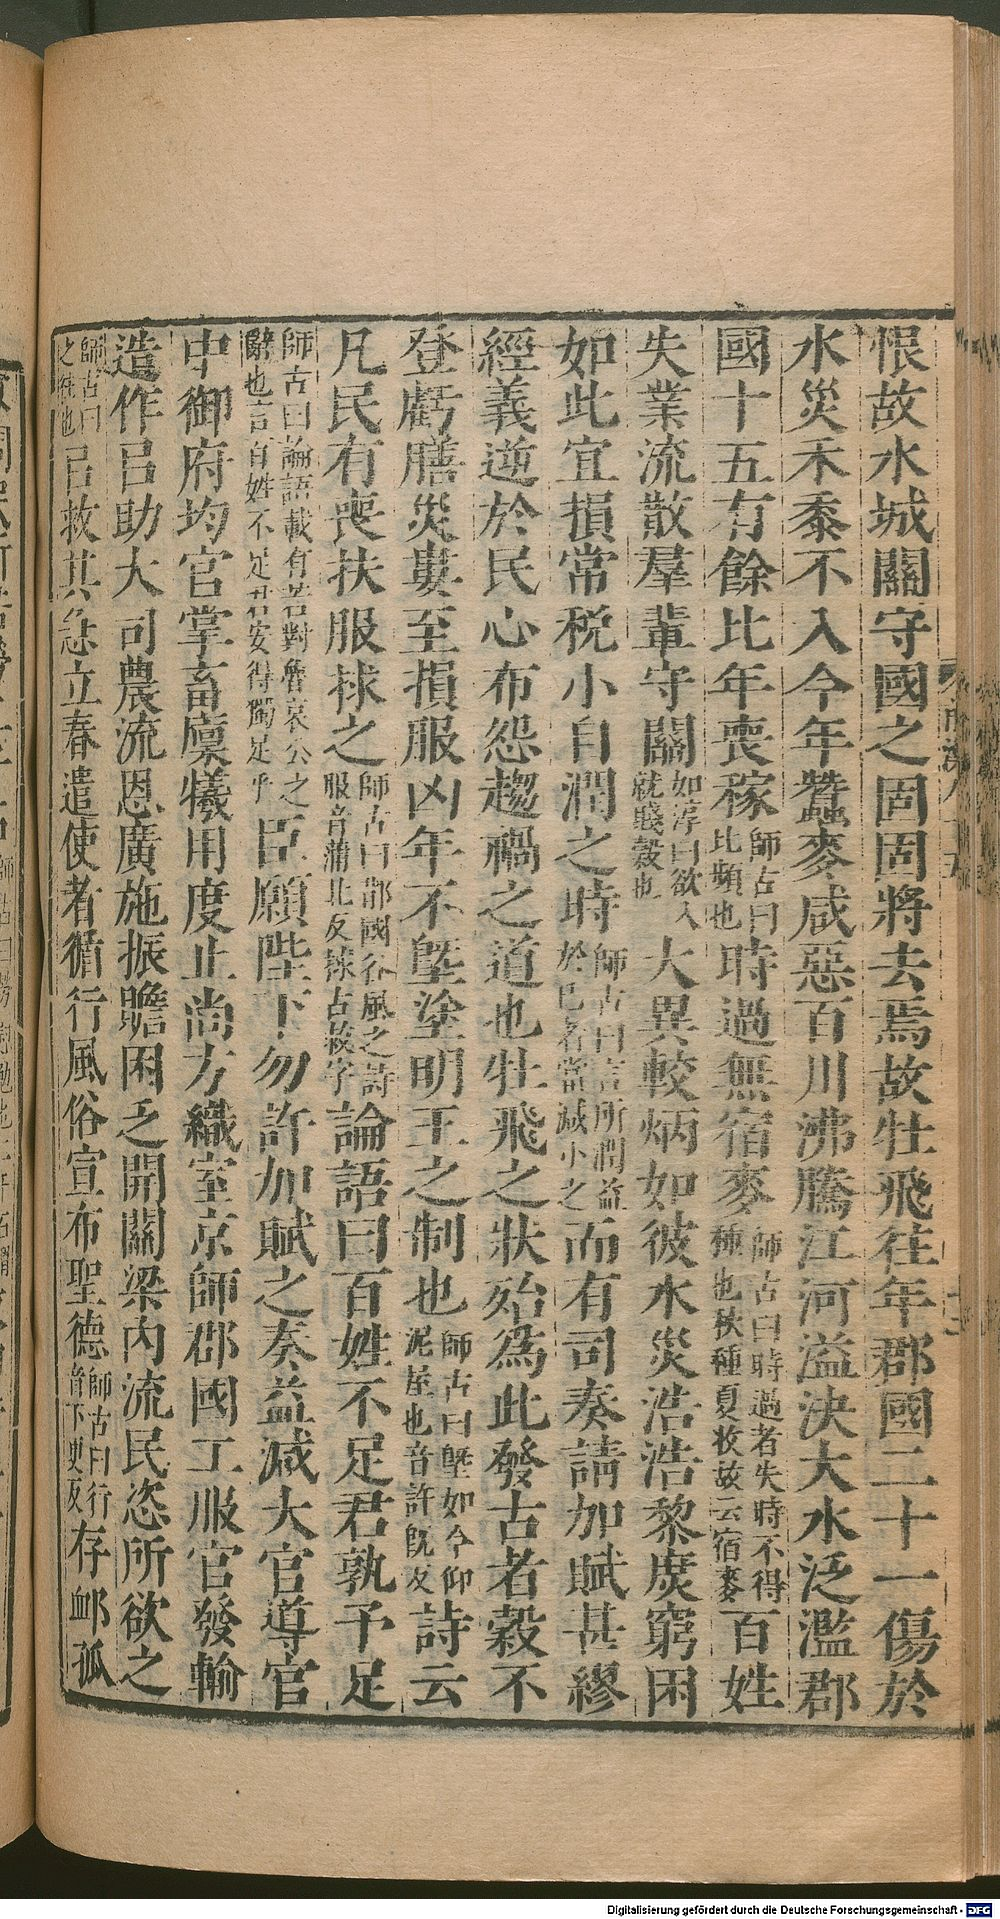 恨故水城關守國之固固將去焉故牡飛往年郡國二十一傷於
水災禾黍不入今年蠶麥咸惡百川沸騰江河溢決大水泛濫郡
國十五有餘比年喪稼師古曰比頻也時過無宿麥師古曰時過者失時不得種也秋種夏收故云宿麥百姓
失業流散羣輩守關如淳曰欲入就賤穀也大異較炳如彼水災浩浩黎庶窮困
如此宜損常稅小自潤之時師古曰言所潤益於己者當減小之而有司奏請加賦甚繆
經義逆於民心布怨趨禍之道也牡飛之狀殆爲此發古者穀不
登虧膳災婁至損服凶年不塈塗明王之制也師古曰塈如今仰泥屋也音許旣反詩云
凡民有喪扶服捄之師古曰邶國谷風之詩服音蒲北反捄古救字論語曰百姓不足君孰予足
師古曰論語載有若對魯哀公之辭也言百姓不足君安得獨足乎臣願陛下勿許加賦之奏益減大官導官
中御府均官掌畜廩犧用度止尚方織室京師郡國工服官發輸
造作㠯助大司農流恩廣施振贍困乏開關梁內流民恣所欲之
師古曰之往也㠯救其急立春遣使者循行風俗宣布聖德師古曰行音下更反存卹孤
Digitalisierung gefördert durch die Deutsche Forschungsgemeinschaft - DFG